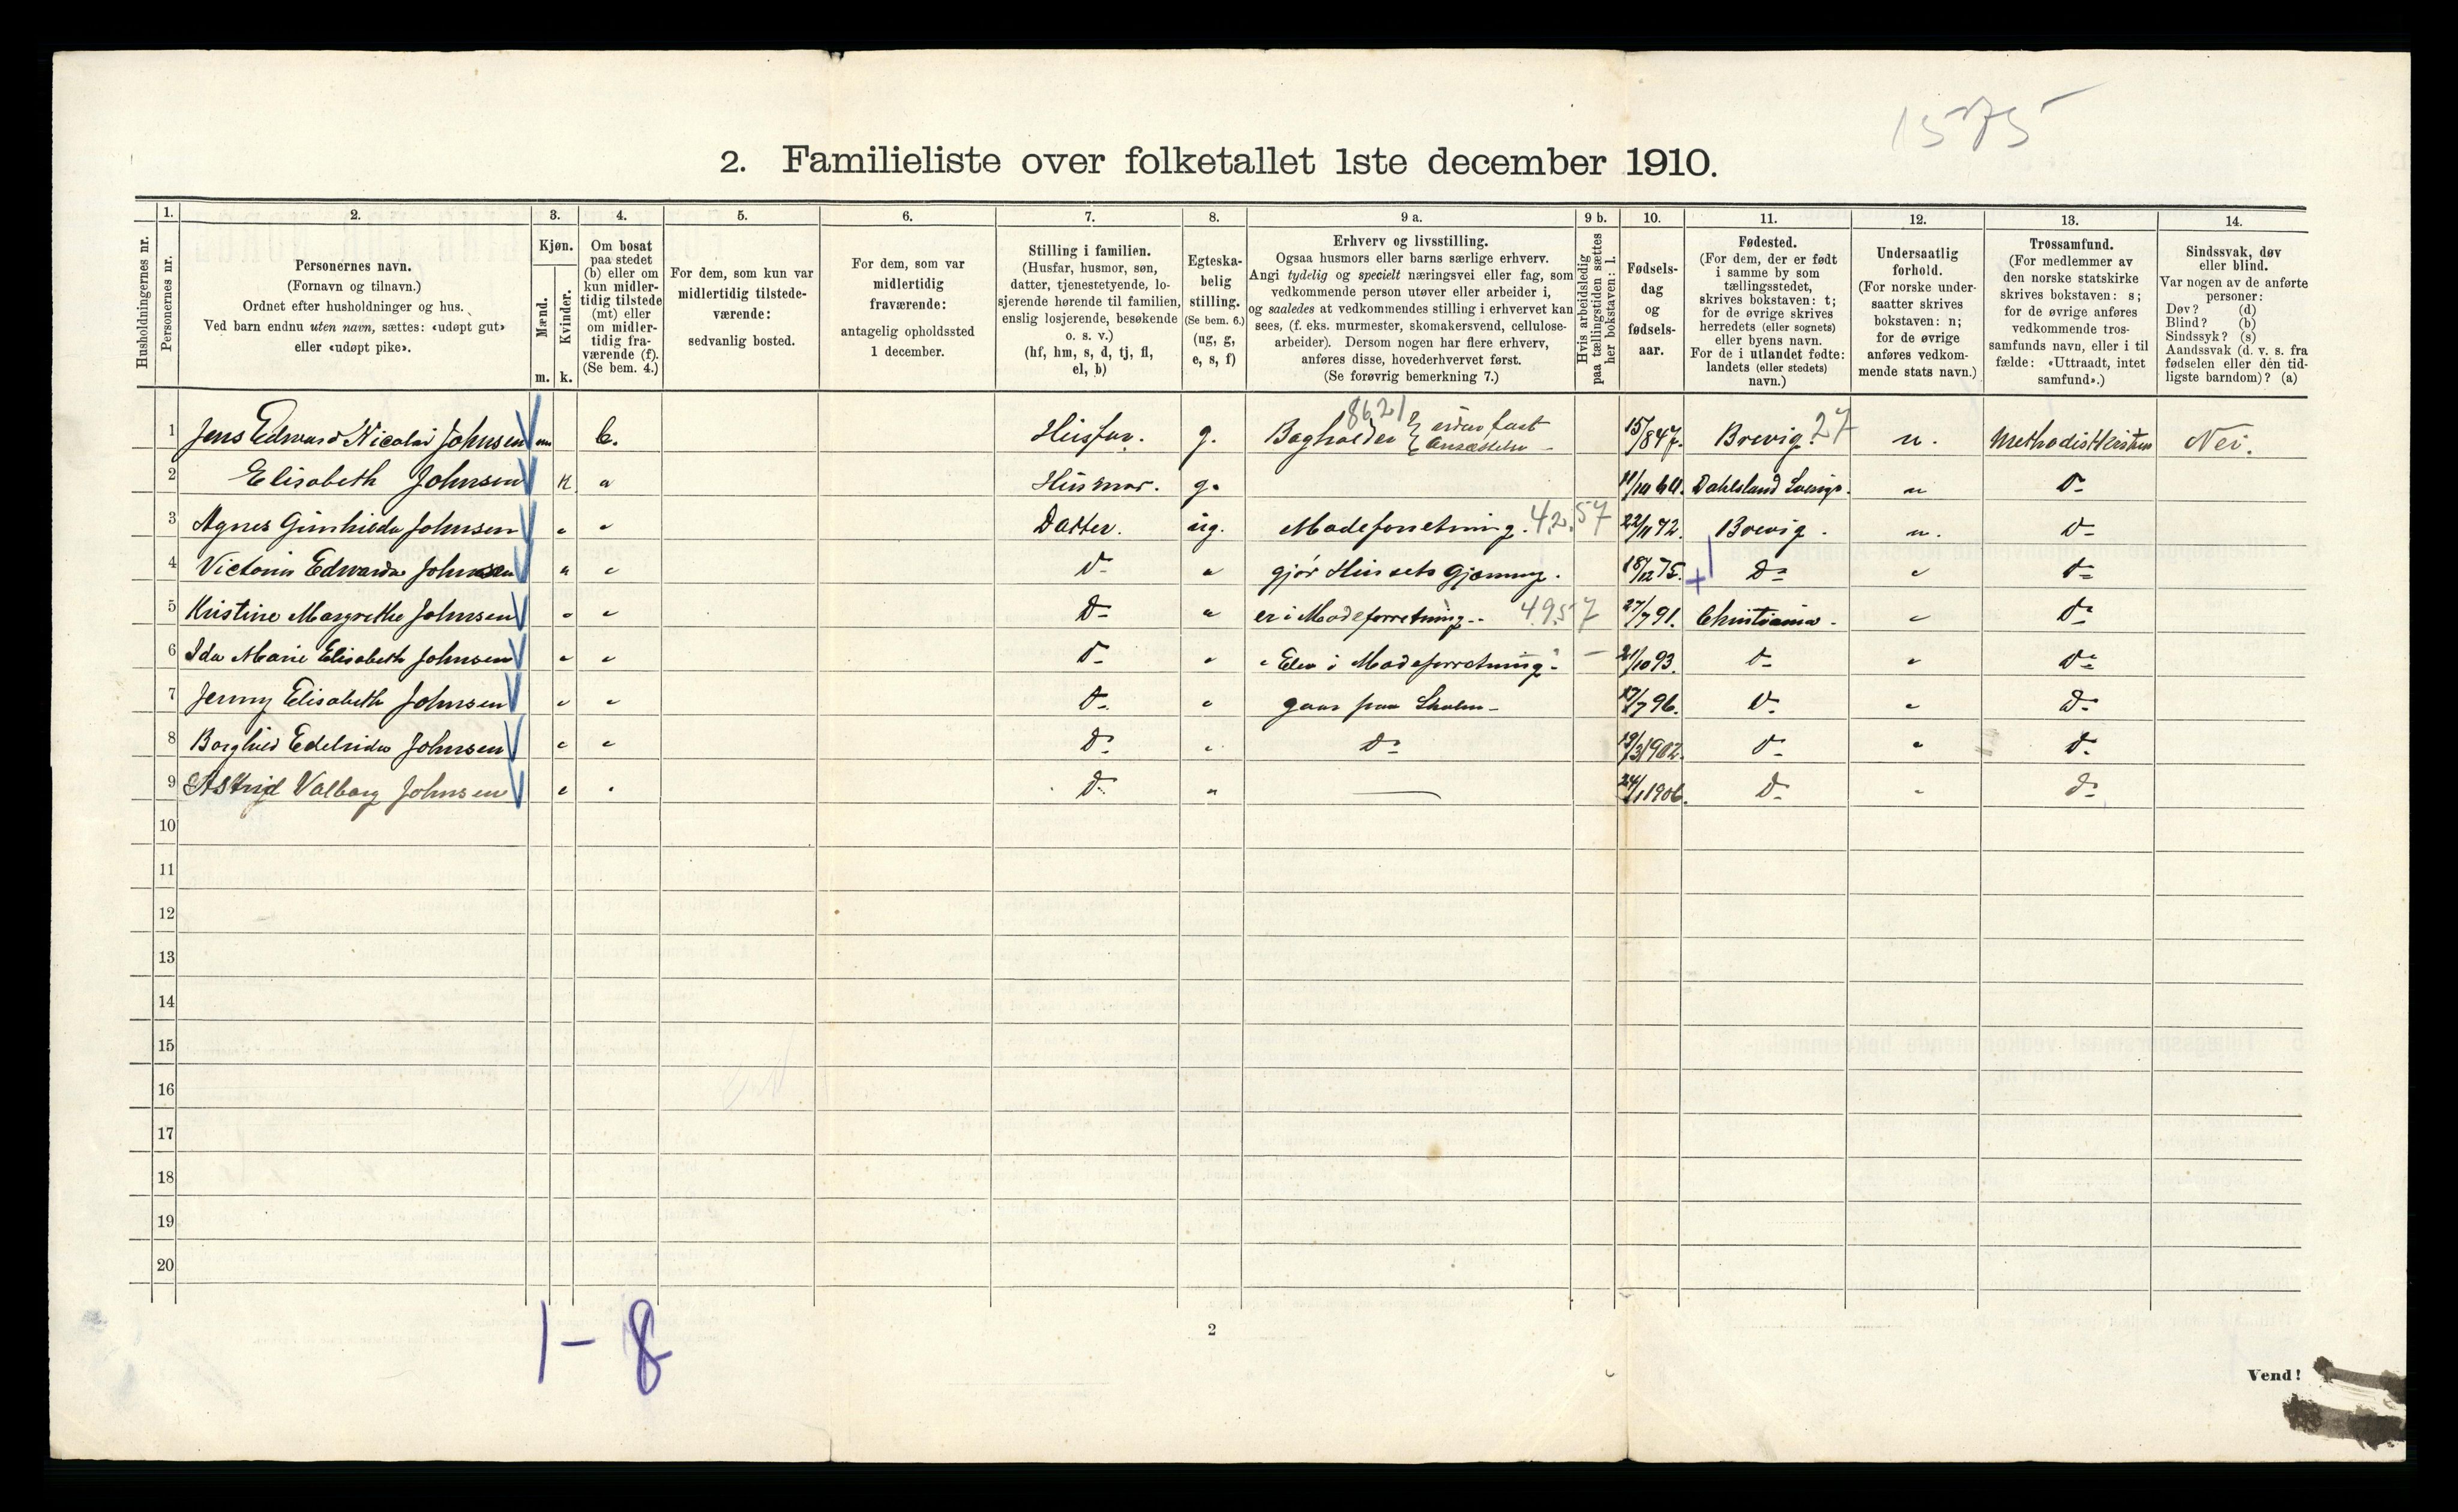 1575
2. Familieliste over folketallet 1ste december 1910.
Husholdningernes nr.
1. Personernes nr.
2.
Personernes navn.
(Fornavn og tilnavn.)
Ordnet efter husholdninger og hus.
Ved barn endnu uten navn, sættes: «udøpt gut»
eller «udøpt pike».
3.
Kjøn.
Mænd. Kvinder.
m. k.
4.
Om bosat
paa stedet
(b) eller om
kun midler-
tidig tilstede
(mt) eller
om midler-
tidig fra-
værende (f).
(Se bem. 4.)
5.
For dem, som kun var
midlertidig tilstede-
værende:
sedvanlig bosted.
6.
For dem, som var
midlertidig
fraværende:
antagelig opholdssted
1 december.
7.
Stilling i familien.
(Husfar, husmor, søn,
datter, tjenestetyende, lo-
sjerende hørende til familien,
enslig losjerende, besøkende
o. s. v.)
(hf, hm, s, d, tj, fl,
el, b)
8.
Egteska-
belig
stilling.
(Se bem. 6.)
(ug, g,
e, s, f)
9 a.
Erhverv og livsstilling.
Ogsaa husmors eller barns særlige erhverv.
Angi tydelig og specielt næringsvei eller fag, som
vedkommende person utøver eller arbeider i,
og saaledes at vedkommendes stilling i erhvervet kan
sees, (f. eks. murmester, skomakersvend, cellulose-
arbeider). Dersom nogen har flere erhverv,
anføres disse, hovederhvervet først.
(Se forøvrig bemerkning 7.)
9 b.
Hvis arbeidsledig
paa tællingstiden sættes
her bokstaven: l.
10.
Fødsels-
dag
og
fødsels-
aar.
11.
Fødested.
(For dem, der er født
i samme by som
tællingsstedet,
skrives bokstaven: t;
for de øvrige skrives
herredets (eller sognets)
eller byens navn.
For de i utlandet fødte:
landets (eller stedets)
navn.)
12.
Undersaatlig
forhold.
(For norske under-
saatter skrives
bokstaven: n;
for de øvrige
anføres vedkom-
mende stats navn.)
13.
Trossamfund.
(For medlemmer av
den norske statskirke
skrives bokstaven: s;
for de øvrige anføres
vedkommende tros-
samfunds navn, eller i til
fælde: «Uttraadt, intet
samfund».)
14.
Sindssvak, døv
eller blind.
Var nogen av de anførte
personer:
Døv? (d)
Blind? (b)
Sindssyk? (s)
Aandssvak (d. v. s. fra
fødselen eller den tid-
ligste barndom)? (a)
1 Jens Edward Nicolai Johnsen m b. Husfar. g. Bogholder { uden fast Ansættelse 8621 15/8 47. Brevig. 27 n. Methodistkirken Nei.
2 Elisabeth Johnsen K " Husmor. g. 11/10 64. Dahlsland Sverige. " D-
3 Agnes Gunhilda Johnsen " " Datter. ug. Modeforretning. 42.57 22/11 72. Brevig. n. D-
4 Victoria Edwarda Johnsen " " D- " gjør Husets Gjerning. 18/12 75. D- " D-
5 Kristine Margrethe Johnsen " " D- " er i Modeforretning. 4957 27/7 91. Christiania. " D-
6 Ida Marie Elisabeth Johnsen " " D- " Elev i Modeforretning 21/10 93. D- " D-
7 Jenny Elisabeth Johnsen " " D- " gaar paa Skolen- 17/7 96. D- " D-
8 Borghild Edelrida Johnsen " " D- " D- 19/3 1902. D- " D-
9 Astrid Valborg Johnsen " " D- " — 24/1 1906. D- " D-
10
11
12
13
14
15
16
17
18
19
20
1 - 8
2
Vend!